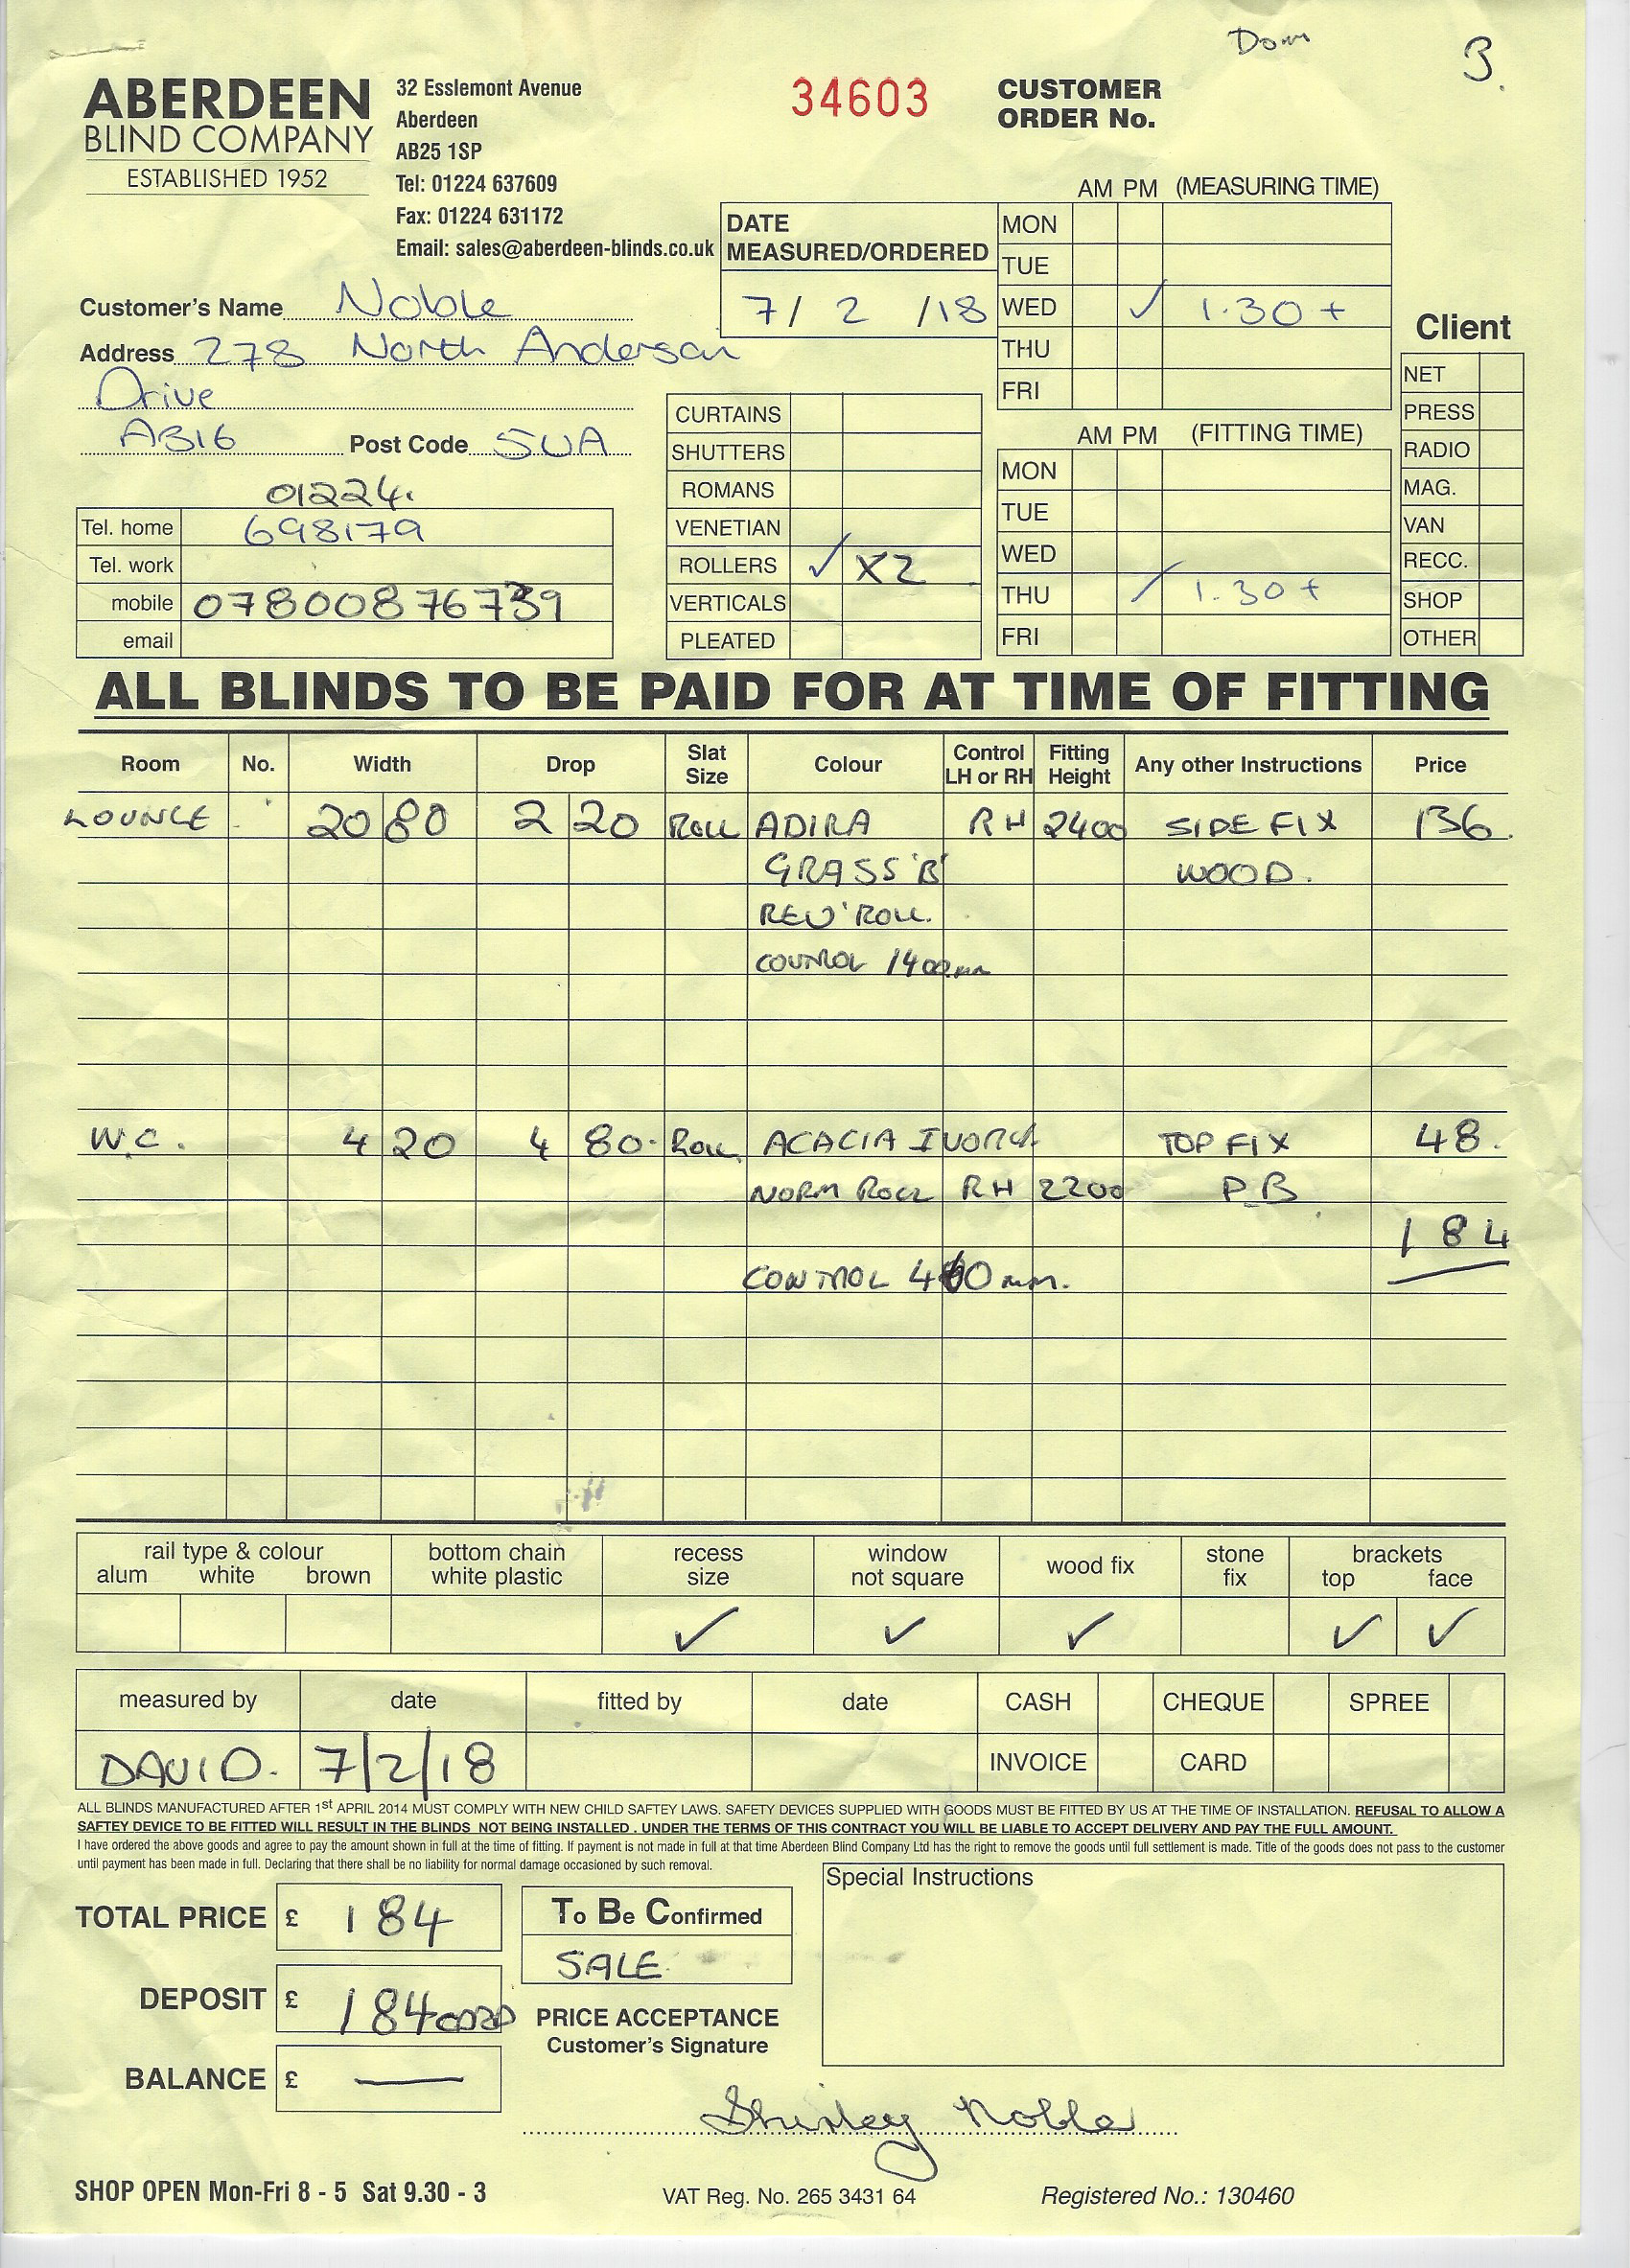 Dom
3.
ABERDEEN
BLIND COMPANY
ESTABLISHED 1952
32 Esslemont Avenue
Aberdeen
AB25 1SP
Tel: 01224 637609
Fax: 01224 631172
Email: sales@aberdeen-blinds.co.uk
34603
CUSTOMER
ORDER No.
AM PM (MEASURING TIME)
DATE
MEASURED/ORDERED
7/ 2 /18
MON
TUE
WED ✓ 1.30 +
THU
FRI
Customer's Name Noble
Address 278 North Anderson
Drive
AB16 Post Code 5UA
01224.
Tel. home 698179
Tel. work
mobile 07800876739
email
CURTAINS
SHUTTERS
ROMANS
VENETIAN
ROLLERS ✓ X2
VERTICALS
PLEATED
AM PM (FITTING TIME)
MON
TUE
WED
THU / 1.30 +
FRI
Client
NET
PRESS
RADIO
MAG.
VAN
RECC.
SHOP
OTHER
ALL BLINDS TO BE PAID FOR AT TIME OF FITTING
Room No. Width Drop Slat Size Colour Control LH or RH Fitting Height Any other Instructions Price
LOUNGE 20 80 2 20 ROLL ADIRA RH 2400 SIDE FIX 136.
GRASS 'B' WOOD.
REV' ROLL.
CONTROL 1400mm
W.C. 4 20 4 80. ROLL ACACIA IVORY TOP FIX 48.
NORM ROLL RH 2200 P.B.
184
CONTROL mm.
rail type & colour
alum white brown
bottom chain
white plastic
recess
size
window
not square
wood fix
stone
fix
brackets
top face
✓ ✓ ✓ ✓ ✓
measured by date fitted by date CASH CHEQUE SPREE
DAVID. 7/2/18 INVOICE CARD
ALL BLINDS MANUFACTURED AFTER 1st APRIL 2014 MUST COMPLY WITH NEW CHILD SAFTEY LAWS. SAFETY DEVICES SUPPLIED WITH GOODS MUST BE FITTED BY US AT THE TIME OF INSTALLATION. REFUSAL TO ALLOW A
SAFTEY DEVICE TO BE FITTED WILL RESULT IN THE BLINDS NOT BEING INSTALLED . UNDER THE TERMS OF THIS CONTRACT YOU WILL BE LIABLE TO ACCEPT DELIVERY AND PAY THE FULL AMOUNT.
I have ordered the above goods and agree to pay the amount shown in full at the time of fitting. If payment is not made in full at that time Aberdeen Blind Company Ltd has the right to remove the goods until full settlement is made. Title of the goods does not pass to the customer
until payment has been made in full. Declaring that there shall be no liability for normal damage occasioned by such removal.
TOTAL PRICE £ 184
DEPOSIT £ 184 CARD
BALANCE £ —
To Be Confirmed
SALE
PRICE ACCEPTANCE
Customer's Signature
Special Instructions
Shirley Noble
SHOP OPEN Mon-Fri 8 - 5 Sat 9.30 - 3
VAT Reg. No. 265 3431 64
Registered No.: 130460